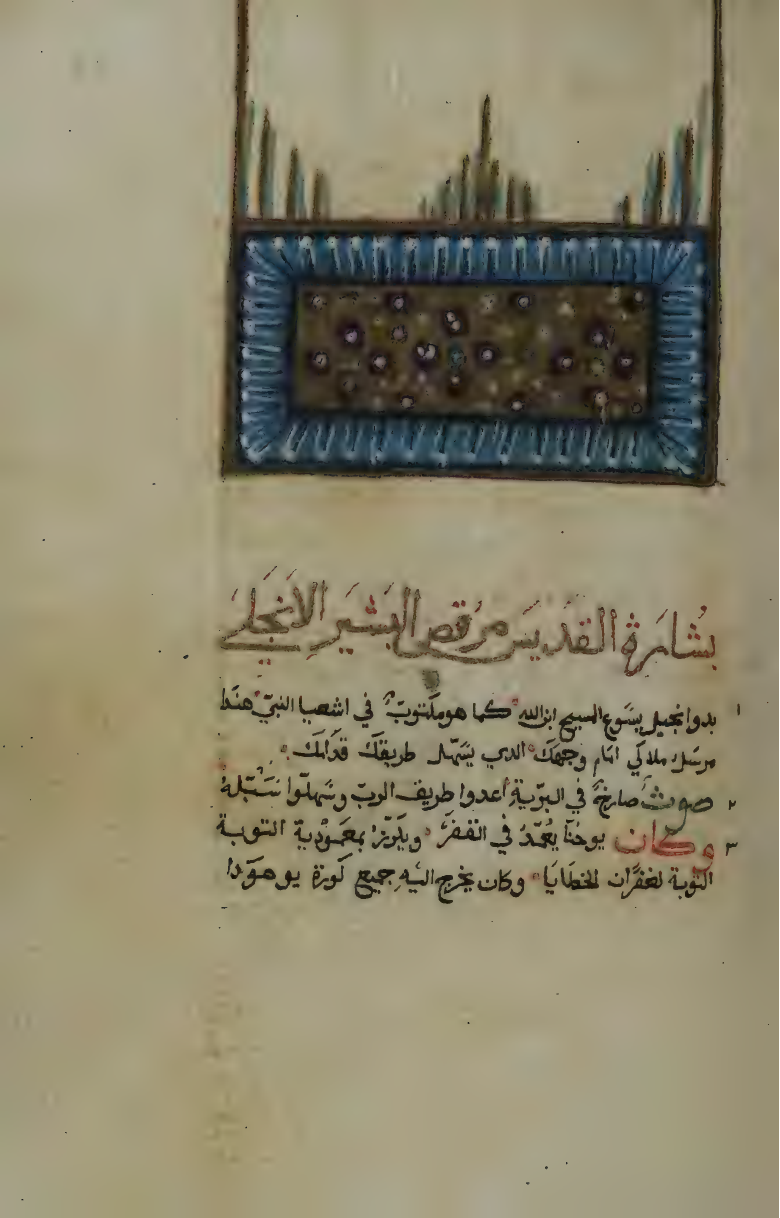 بشارة القديس مرقص البشير الانجلي
١ بدو انجيل يسوع المسيح ابن الله كما هو مكتوب في اشعيا النبي هندا
مرسل ملاكي امام وجهك الدي يسهل طريقك قدامك
٢ صوت صارخ في البرية اعدوا طريق الرب وسهلوا سبله
٣ وكان يوحنا يعمد في القفر ويكرز بمعمودية التوبة
التوبة لغفران الخطايا وكان يخرج اليه جميع كورة يوهودا